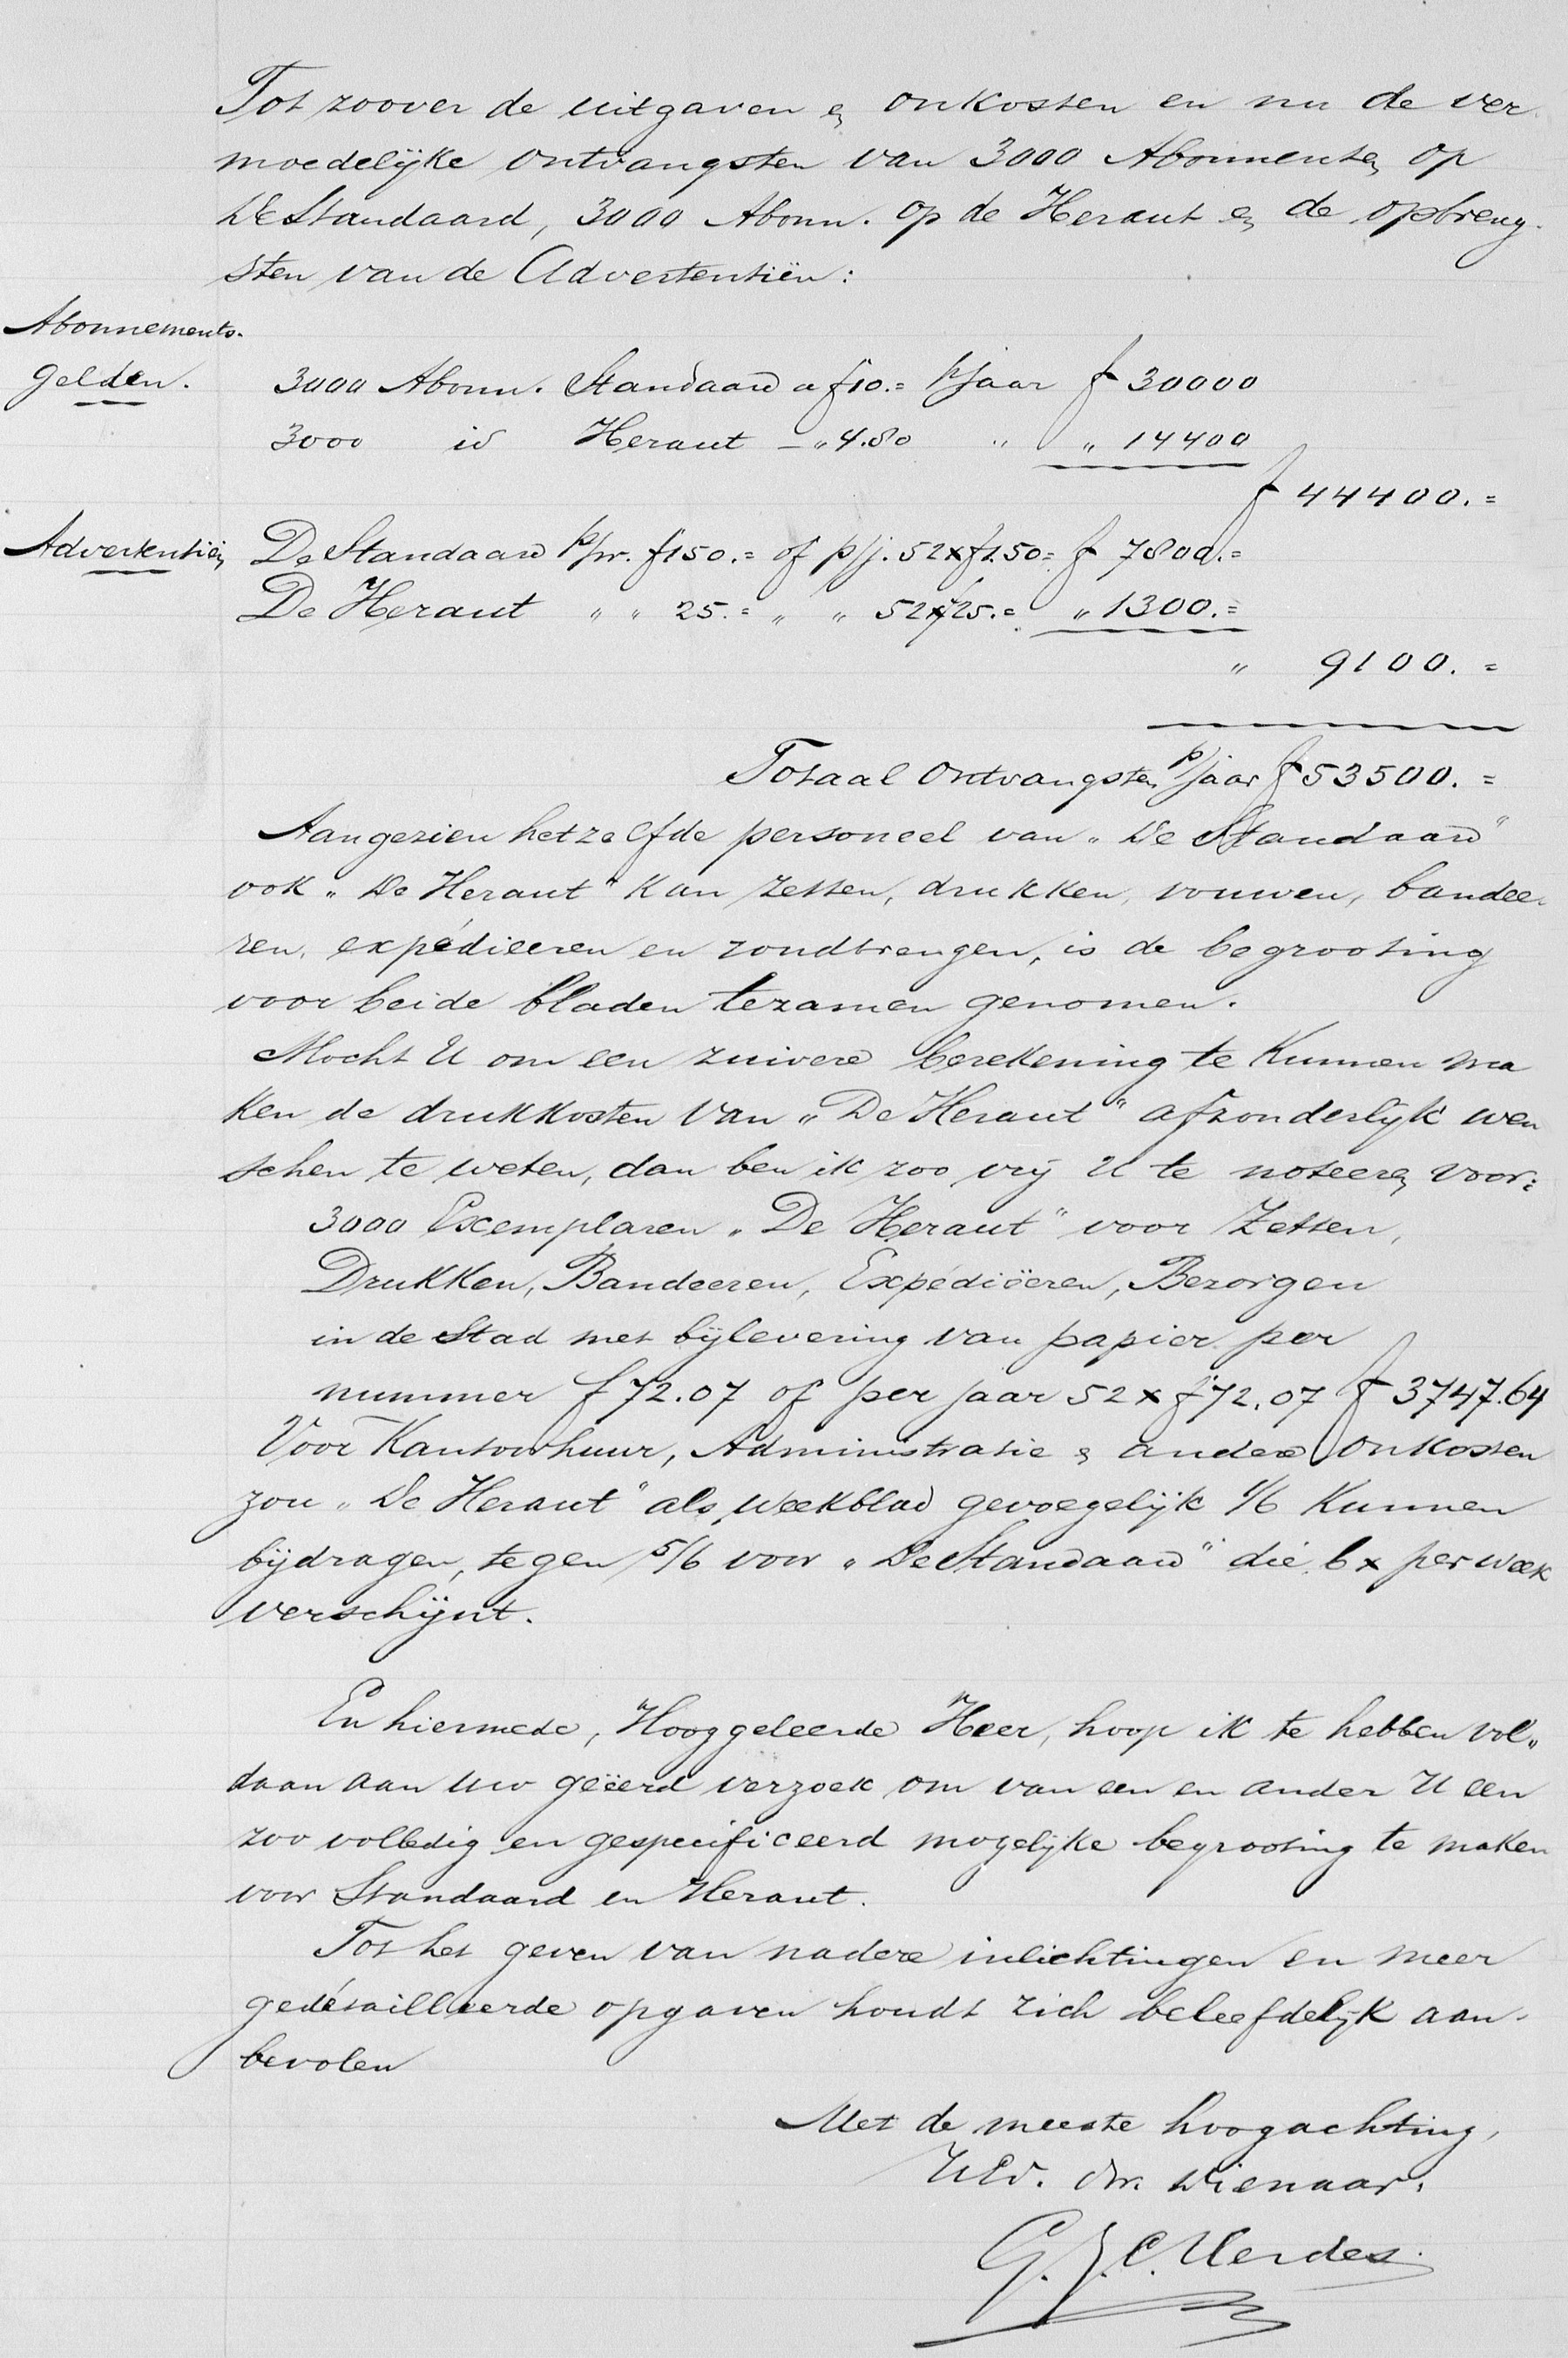 Tot zoover de uitgaven & onkosten en nu de ver-
moedelijke ontvangsten van 3000 Abonnenten op
De Standaard, 3000 Abonn. op de Heraut & de opbreng-
sten van de Advertentiën:
Abonnements-
gelden.
3000 Abonn. Standaard a f 10.= p/jaar f 30000
3000 id Heraut - „ 4.80 „ „ 14400
f 44400.=
Advertentiën
De Standaard p/nr. f 150.= of p/j. 52 x f 150= f 7800.=
De Heraut „ „ 25.= „ „ 52 x f 25.= „ 1300.=
„ 9100.=
Totaal Ontvangsten p/jaar f 53500.=
Aangezien hetzelfde personeel van „De Standaard"
ook „De Heraut" kan zetten, drukken, vouwen, bandee-
ren, expédieeren en rondbrengen, is de begrooting
voor beide bladen tezamen genomen.
Mocht U om een zuivere berekening te kunnen ma
ken de drukkosten van „De Heraut" afzonderlijk wen
schen te weten, dan ben ik zoo vrij U te noteeren voor:
3000 Exemplaren „De Heraut" voor Zetten,
Drukken, Bandeeren, Expédiëeren, Bezorgen
in de Stad met bijlevering van papier per
nummer f 72.07 of per jaar 52 x f 72.07 f 3747.64
Voor Kantoorhuur, Administratie & andere onkosten
zou „De Heraut" als Weekblad gevoegelijk 1/6 kunnen
bijdragen, tegen 5/6 voor „De Standaard" die 6 x per week
verschijnt.
En hiermede, Hooggeleerde Heer, hoop ik te hebben vol„
daan aan Uw geëerd verzoek om van een en ander U een
zoo volledig en gespecificeerd mogelijke begrooting te maken
voor Standaard en Heraut.
Tot het geven van nadere inlichtingen en meer
gedétailleerde opgaven houdt zich beleefdelijk aan-
bevolen
Met de meeste hoogachting,
UEd. dw. Dienaar,
G. J. C. Herdes.